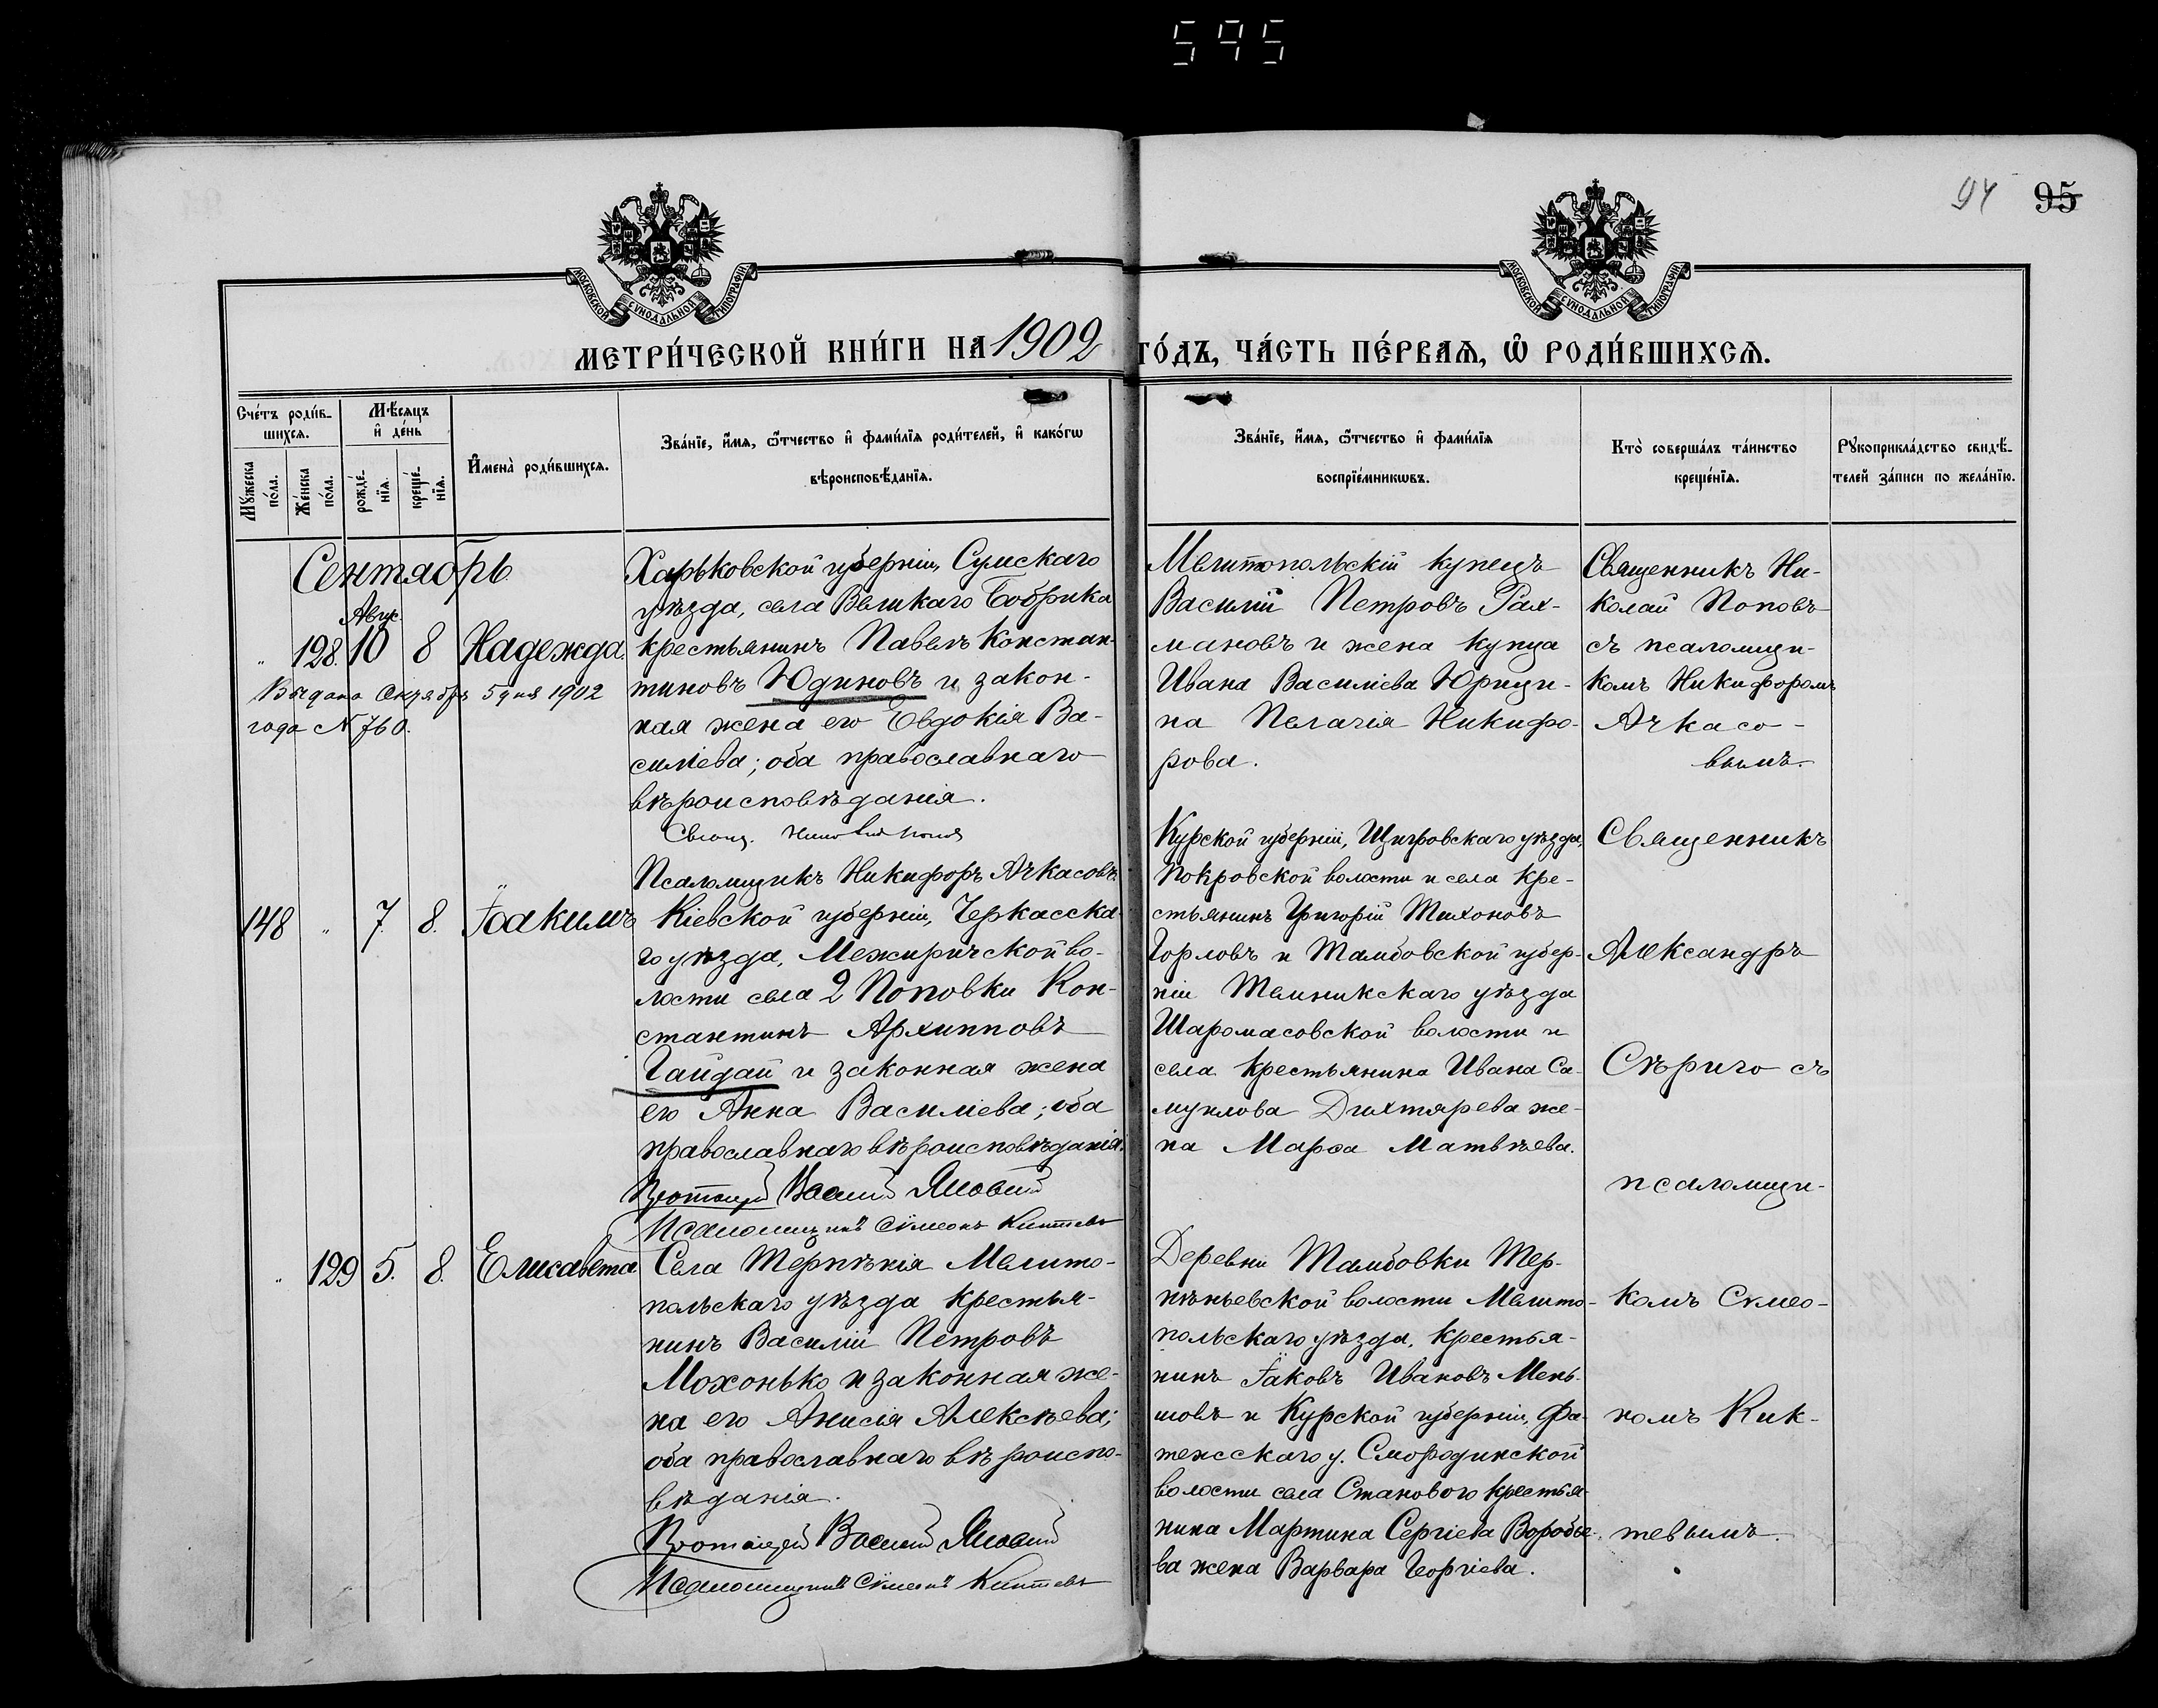 595
94 95
МОСКОВСКОЙ СѴНОДАЛЬНОЙ ТИПОГРАФІИ.
МОСКОВСКОЙ СѴНОДАЛЬНОЙ ТИПОГРАФІИ.
МЕТРИ́ЧЕСКОЙ КНИ́ГИ НА 1902 ГО́ДЪ, ЧА́СТЬ ПЕ́РВАѦ, Ѽ РОДИ́ВШИХСѦ.
Сче́тъ роди́в-
шихсѧ.
Мꙋ́жеска
по́ла.
Же́нска
по́ла.
Мѣ́сѧцъ
и҆ де́нь
рожде́-
нїѧ.
креще́-
нїѧ.
И҆мена̀ роди́вшихсѧ.
Зва́нїе, и҆́мѧ, ѻ҆́тчество и҆ фами́лїѧ роди́телей, и҆ како́гѡ
вѣроисповѣ́данїѧ.
Зва́нїе, и҆́мѧ, ѻ҆́тчество и҆ фами́лїѧ
воспрїе́мникѡвъ.
Кто̀ соверша́лъ та́инство
креще́нїѧ.
Рꙋкоприкла́дство свидѣ́-
телей за́писи по жела́нїю.
Сентябрь
Авгус.
" 128. 10 8 Надежда.
Выдана Октября 5 дня 1902
года № 760.
Харьковской губерніи, Сумскаго
уѣзда, села Великаго Бобрика
крестьянинъ Павелъ Констан-
тиновъ Юдиновъ и закон-
ная жена его Евдокія Ва-
силіева; оба православнаго
вѣроисповѣданія.
Свящ.
Псаломщикъ Никифоръ Ачкасовъ.
Мелитопольскій купецъ
Василій Петровъ Рах-
мановъ и жена купца
Ивана Василіева Юрици-
на Пелагія Никифо-
рова.
Священникъ Ни-
колай Поповъ
съ псаломщи-
комъ Никифоромъ
Ачкасо-
вымъ.
148 " 7. 8. Іоакимъ
Кіевской губерніи, Черкасска-
го уѣзда, Межиричской во-
лости села 2 Поповки Кон-
стантинъ Архипповъ
Гайдай и законная жена
его Анна Василіева; оба
православнаго вѣроисповѣданія.
Протоіерей Василій
Псаломщикъ Сѵмеонъ Киктевъ
Курской губерніи, Щигровскаго уѣзда,
Покровской волости и села кре-
стьянинъ Григорій Тихоновъ
Горловъ и Тамбовской губер-
ніи Темникскаго уѣзда
Шаромасовской волости и
села крестьянина Ивана Са-
муилова Дихтярева же-
на Марѳа Матвѣева.
Священникъ
Александръ
Сѣриго съ
псаломщи-
" 129 5. 8. Елисавета
Села Терпѣнія Мелито-
польскаго уѣзда крестья-
нинъ Василій Петровъ
Мохонько и законная же-
на его Анисія Алексѣева;
оба православнаго вѣроиспо-
вѣданія.
Протоіерей Василій
Псаломщикъ Сѵмеонъ Киктевъ
Деревни Тамбовки Тер-
пѣньевской волости Мелито-
польскаго уѣзда, крестья-
нинъ Іаковъ Ивановъ Мень-
шовъ и Курской губерніи, Фа-
тежсскаго у. Смородинской
волости села Становаго крестья-
нина Мартина Сергіева Воробье-
ва жена Варвара Георгіева.
комъ Сѵмео-
номъ Кик-
тевымъ.